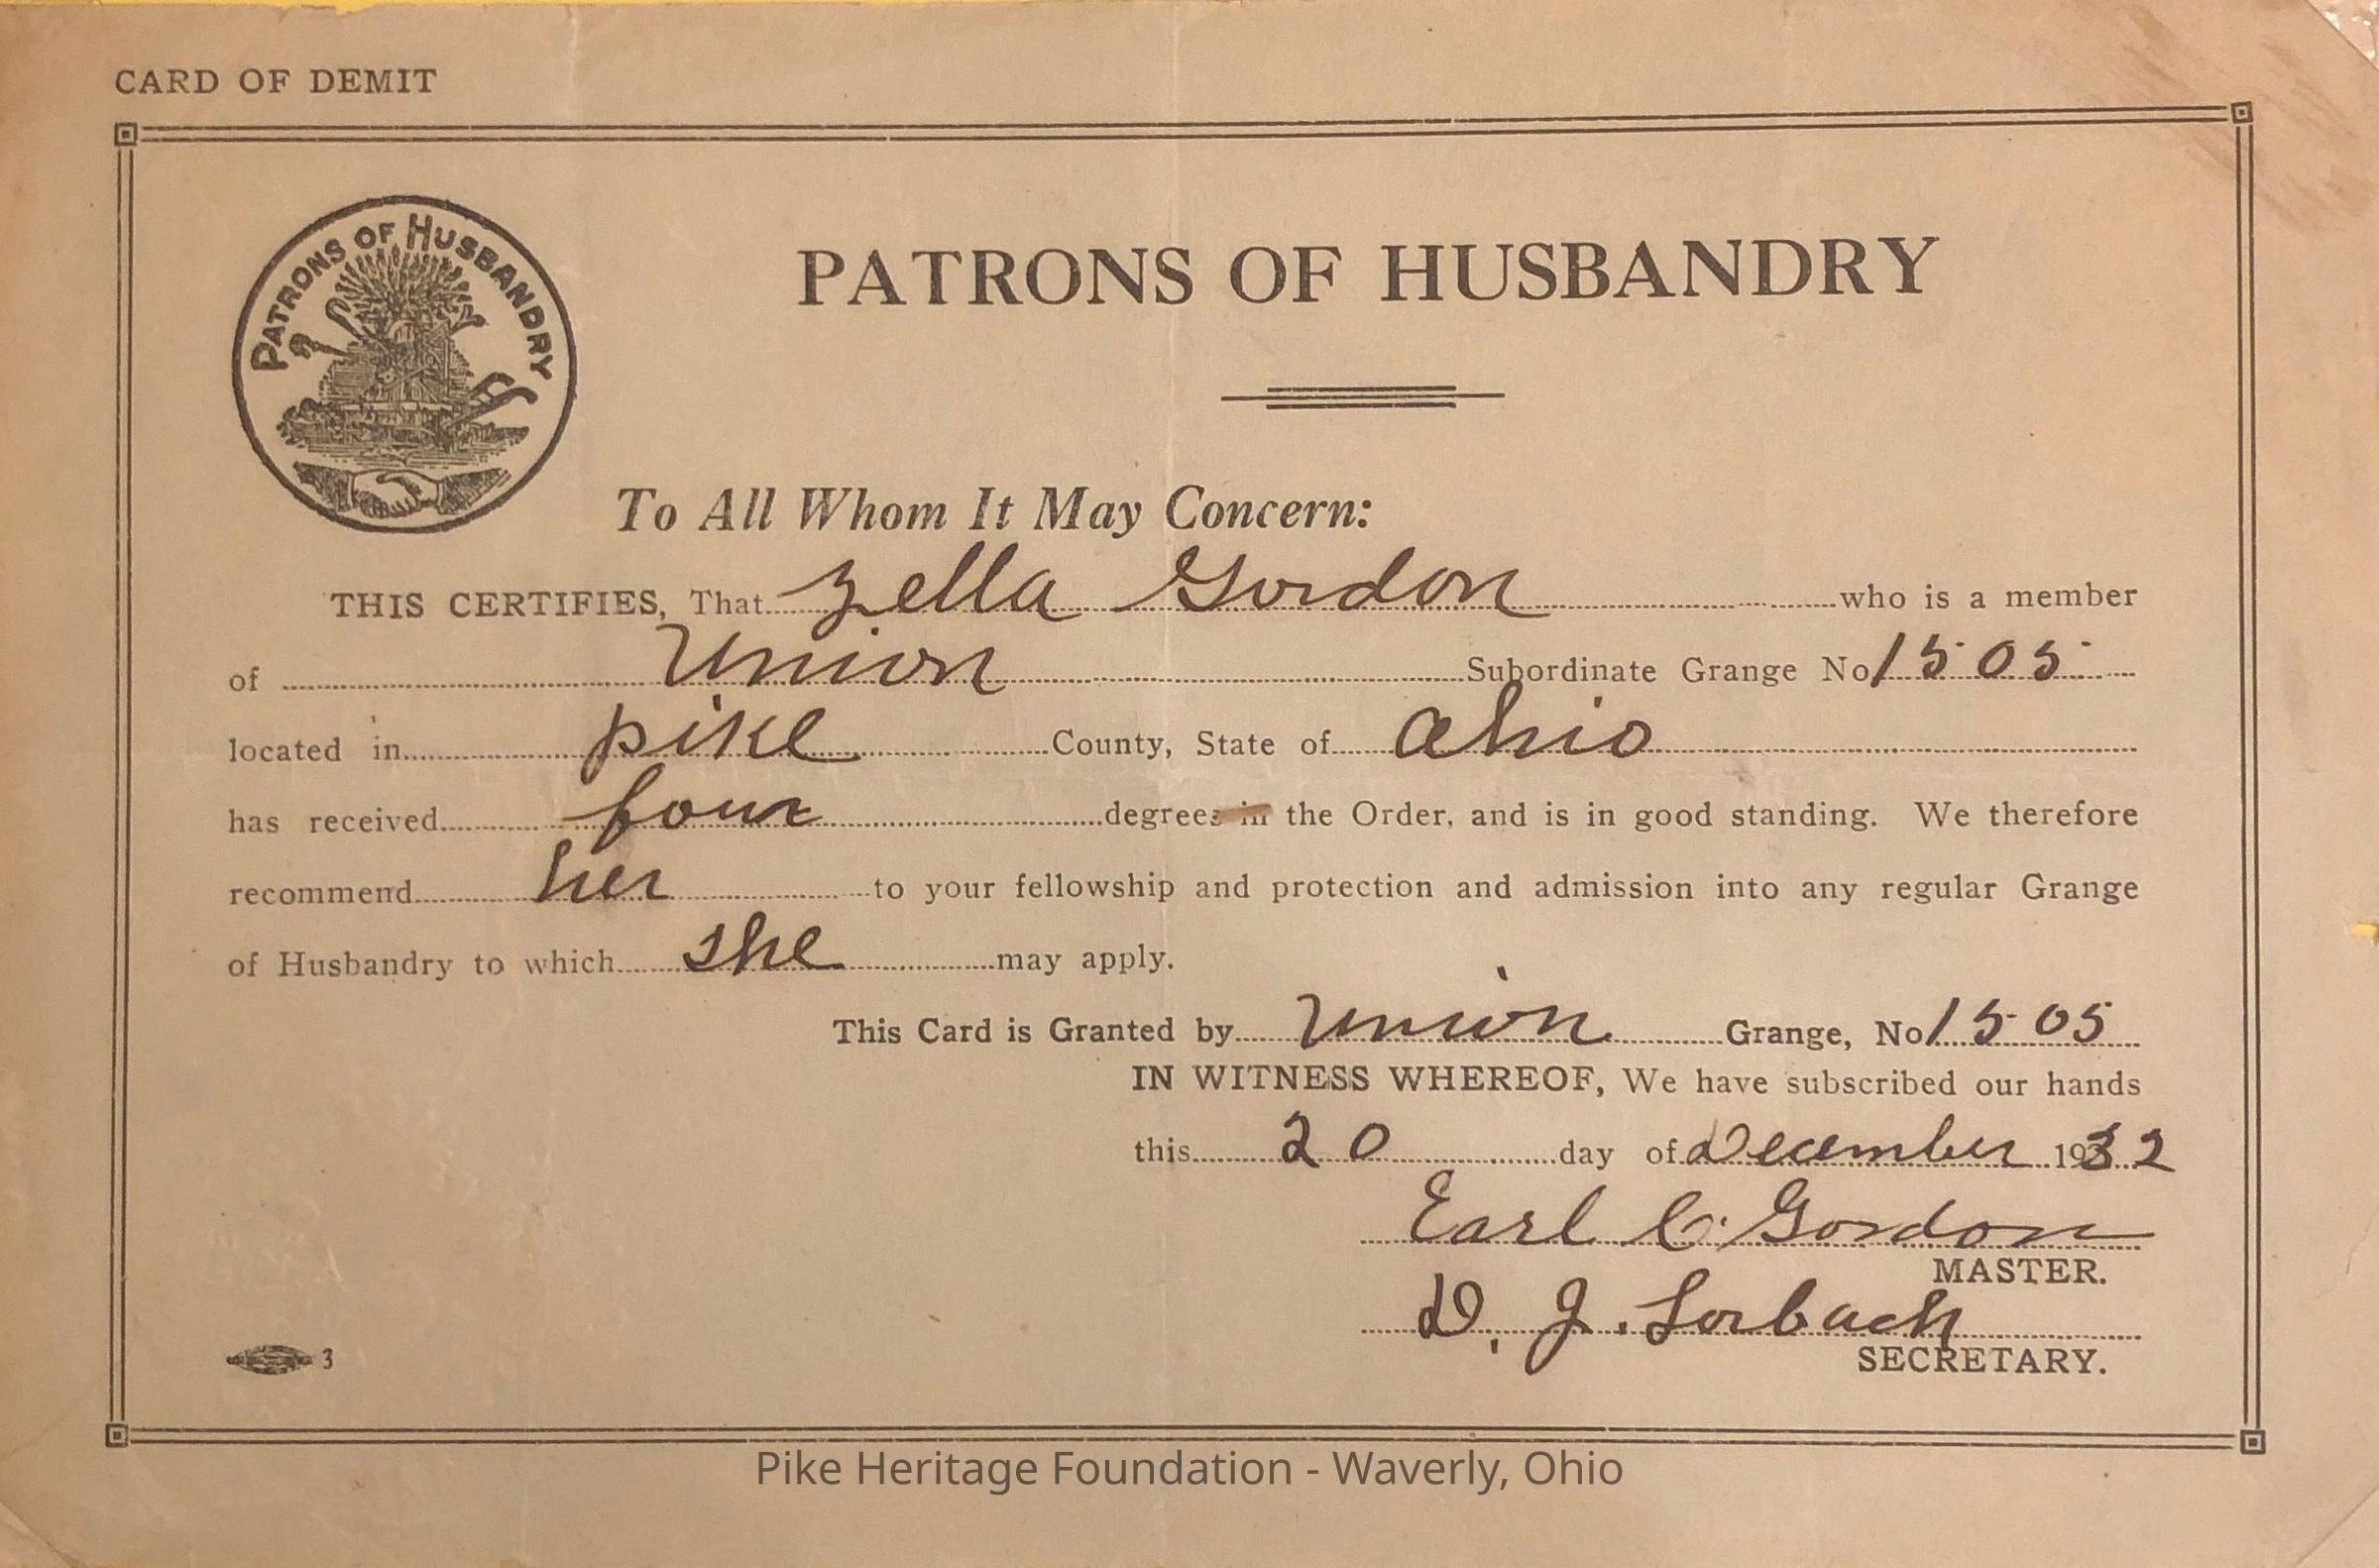 CARD OF DEMIT
PATRONS OF HUSBANDRY
PATRONS OF HUSBANDRY
To All Whom It May Concern:
THIS CERTIFIES, That Zella Gordon who is a member
of Union Subordinate Grange No 1505
located in pike County, State of Ohio
has received four degrees in the Order, and is in good standing. We therefore
recommend her to your fellowship and protection and admission into any regular Grange
of Husbandry to which she may apply.
This Card is Granted by Union Grange, No 1505
IN WITNESS WHEREOF, We have subscribed our hands
this 20 day of December 1932
Earl C. Gordon
MASTER.
D. J. Lorbach
SECRETARY.
3
Pike Heritage Foundation - Waverly, Ohio